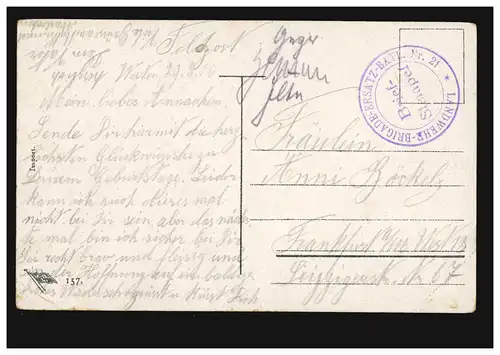 Feldpost
29.8.16
Mein liebes Annachen.
Sende Dir hiermit die herz-
lichsten Glückwünsche zu
Deinem Geburtstage. Leider
kann ich auch dieses mal
nicht bei Dir sein, aber das näch-
ste mal bin ich sicher bei Dir.
Sei recht brav und fleißig und
in der Hoffnung auf ein baldi-
ges Wiedersehn grüßt u küßt Dich
Fräulein
Anni Böckel
Frankfurt a/M West 13
Leipzigerstr. 67
LANDWEHR-BRIGADE-ERSATZ-BATL. Nr. 21 *
Brief
Stempel
Import.
157.